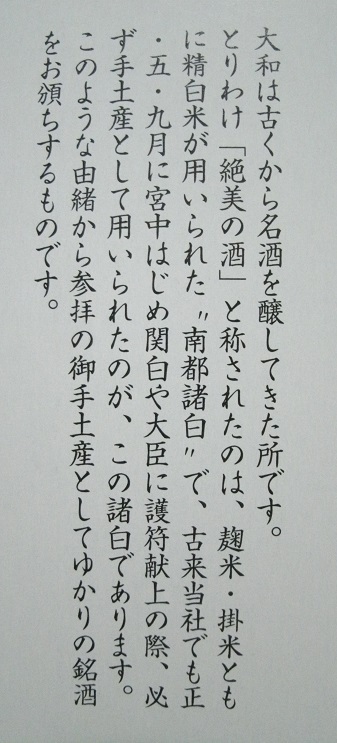 大和は古くから名酒を醸してきた所です。
とりわけ「絶美の酒」と称されたのは、麹米・掛米とも
に精白米が用いられた〝南都諸白〟で、古来当社でも正
・五・九月に宮中はじめ関白や大臣に護符献上の際、必
ず手土産として用いられたのが、この諸白であります。
このような由緒から参拝の御手土産としてゆかりの銘酒
をお頒ちするものです。